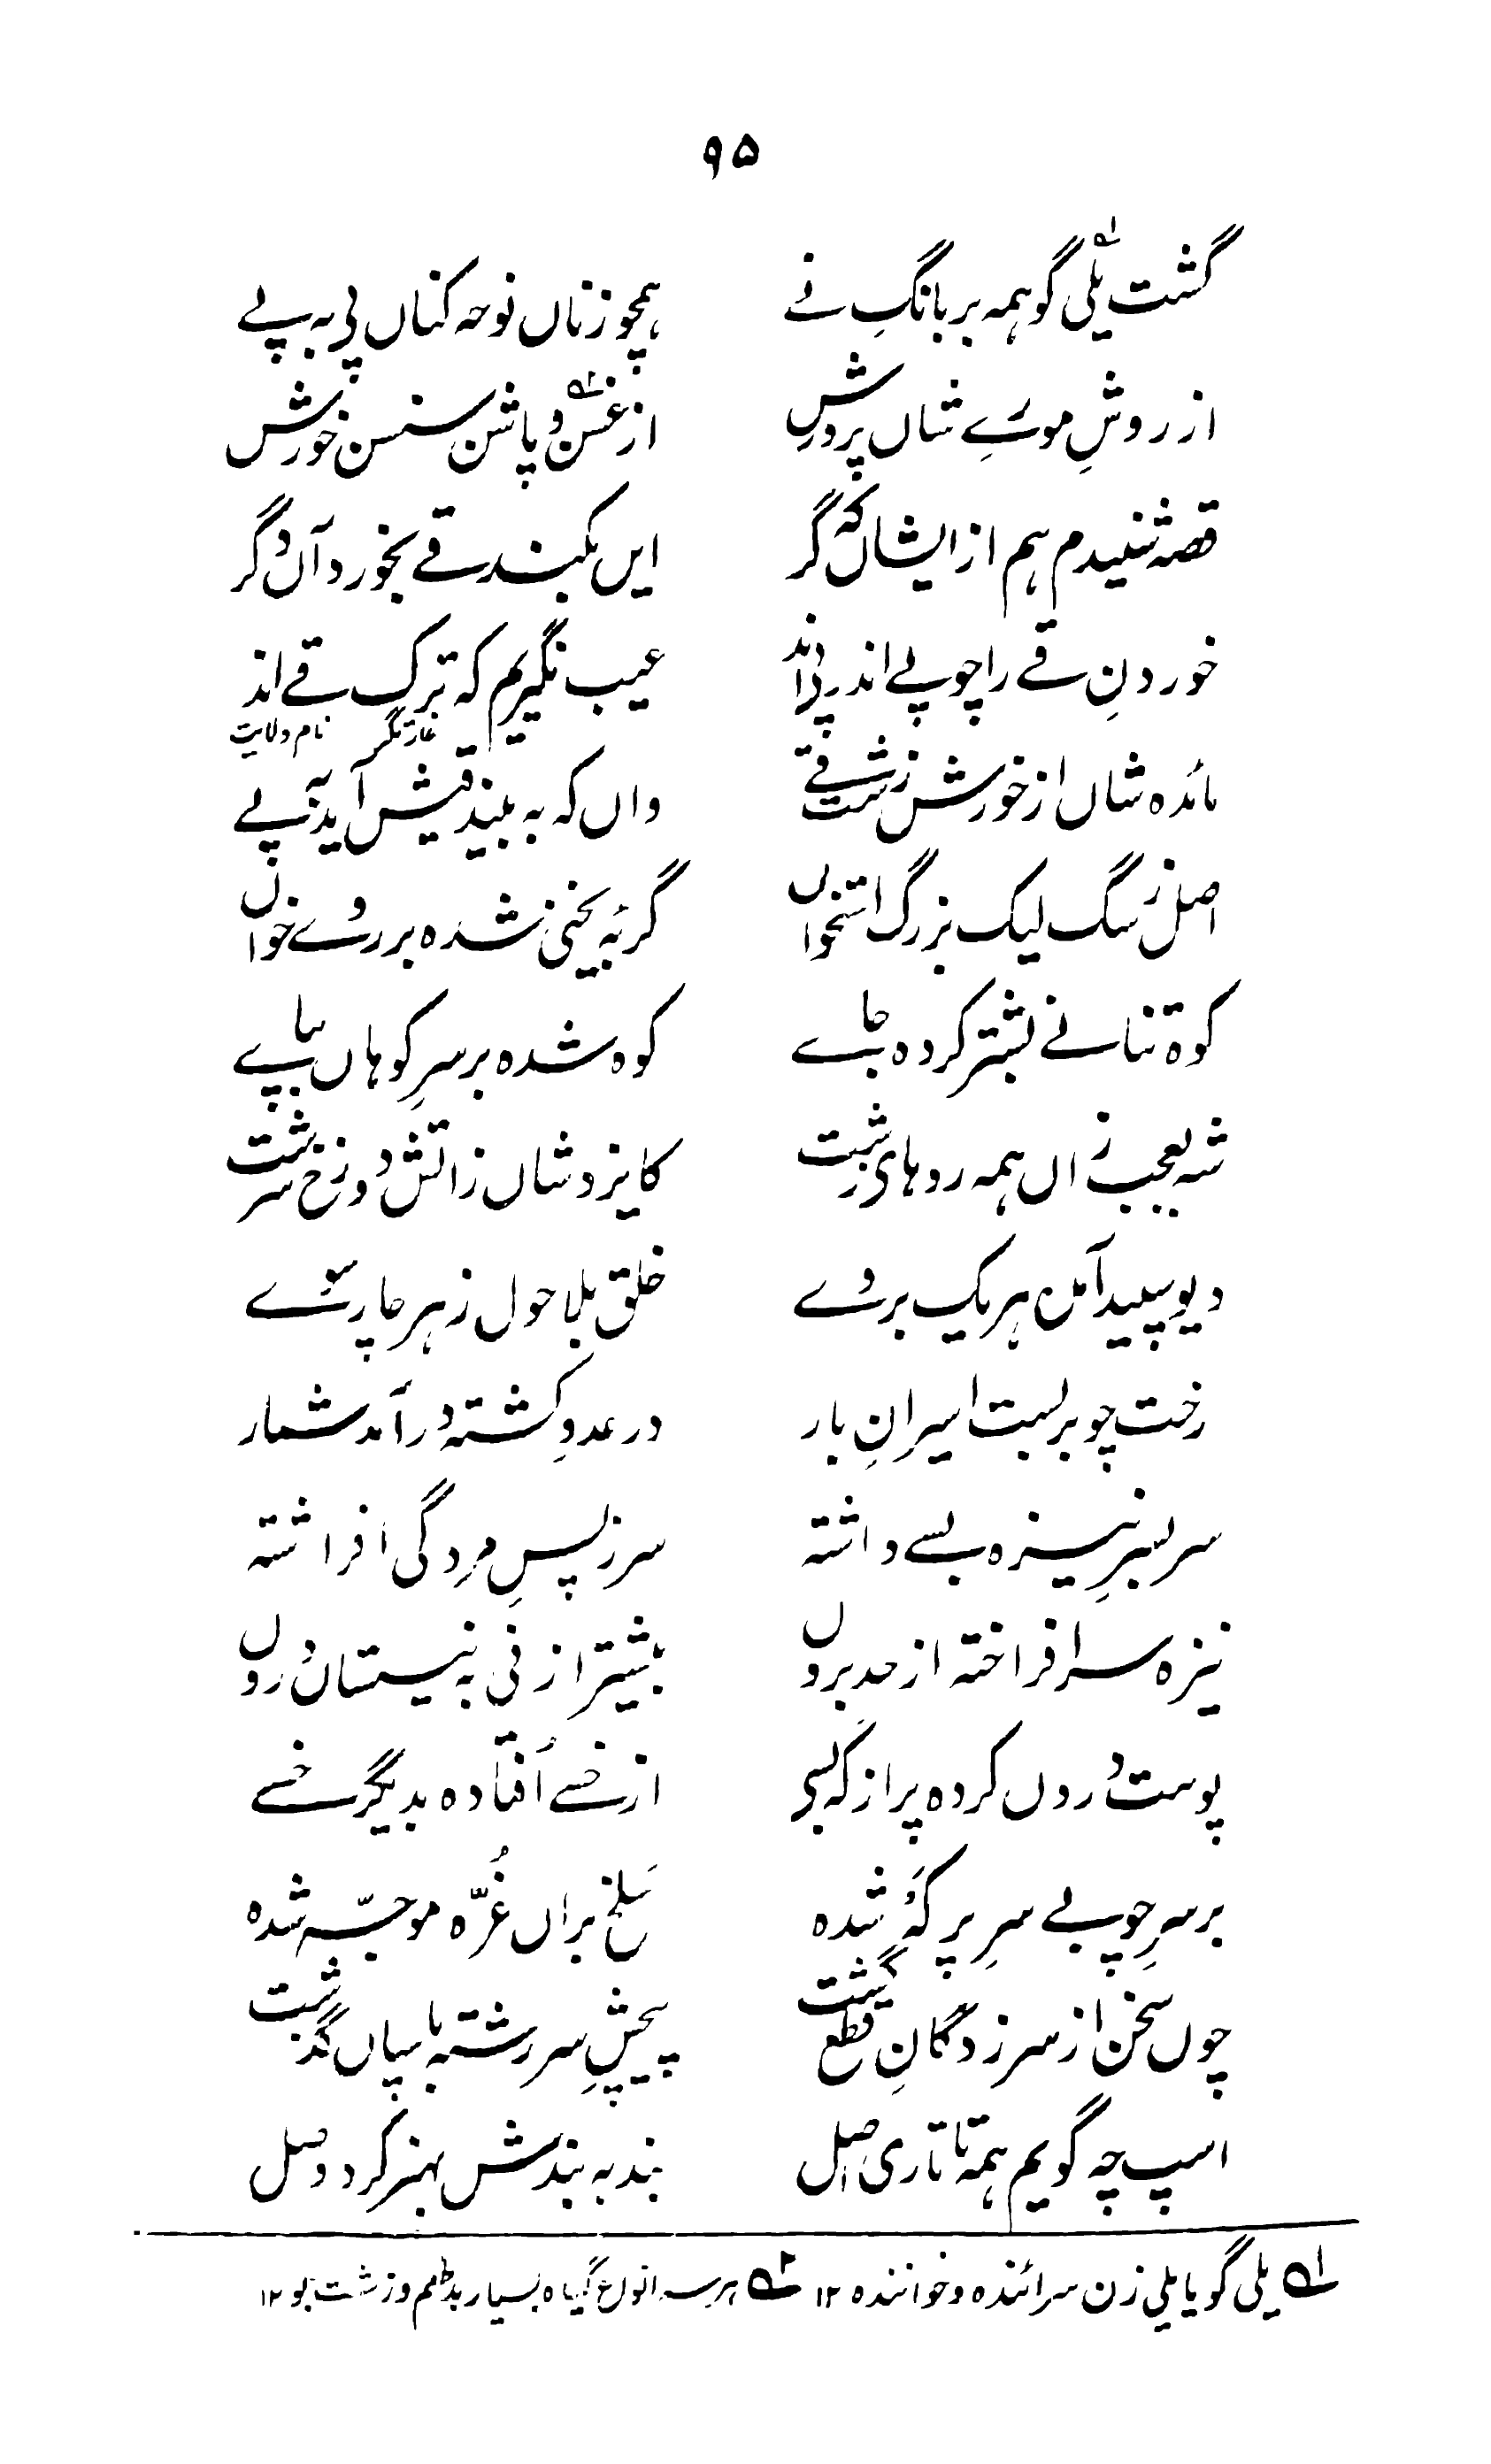 ۹۵
گشت یلی گو ہمہ بر بانگِ نے ہمچو زناں نوحہ کناں پی بہ پے
از روشِ موے شاں پرورش از غسن و پاشن سنسن خورش
قصہ شنیدم ہم از ایشاں کہ گر ایں بکند قے بخورد آں دگر
خوردنِ قے را چو پے اندر پی اند عیب نگیرم کہ ترک قے اند
غارتگر نام ولایت
مائدہ شاں از خورش زشت قے واں کہ بہ بیند قیش آید بہ پے
اصل ز سگ لیک بزرگ استخواں گربۂ یخنی شدہ بر روے خواں
کوہ تنانے بشتر کردہ جاے کوہ شدہ بر سرِ کوہاں بپاے
شہ بعجب زاں ہمہ روہای زشت کایزد شاں ز اتش دوزخ سرشت
دیو سپید آمدہ ہر یک بروے خلق بلاحول ز ہر چار سوے
رخت چو بربست اسیرانِ بار در عددِ کشتہ در آمد شمار
سر بسرِ نیزہ بسے داشتہ سر ز پسِ مردگی افراشتہ
نیزہ سر افراختہ از حد بروں بیشتر از نی بہ نیستاں دروں
پوست دروں کردہ پر از کہ بسی از خسے اُفتادہ بدیگر خسے
بر سرِ چوبے سرِ پر کہ شدہ سَلخ براں غُرّہ موجّہ شدہ
چوں سخن از سر زدگانِ قطع گشت پیچشِ سر رشتہ بپایاں گذشت
اسپ چہ گویم ہمہ تاتاری اصل بند بہ بندش بہنر کرد وصل
۱ یلی گو یا یلی زن سرائندہ و خوانندہ ۱۲ ۲ ہرسہ انواع گیاہ بسیار بدطعم و زشت بو ۱۲